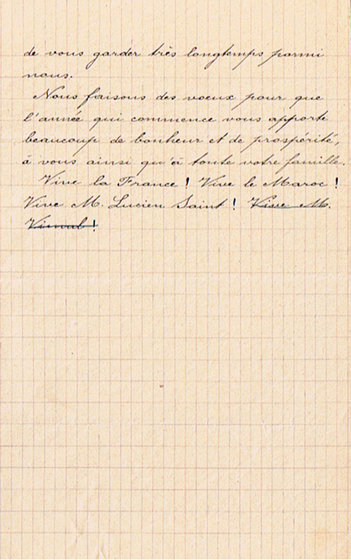 de vous garder très longtemps parmi
nous.
Nous faisons des vœux pour que
l'année qui commence vous apporte
beaucoup de bonheur et de prospérité,
à vous ainsi qu'à toute votre famille.
Vive la France ! Vive le Maroc !
Vive M. Lucien Saint ! Vive M.